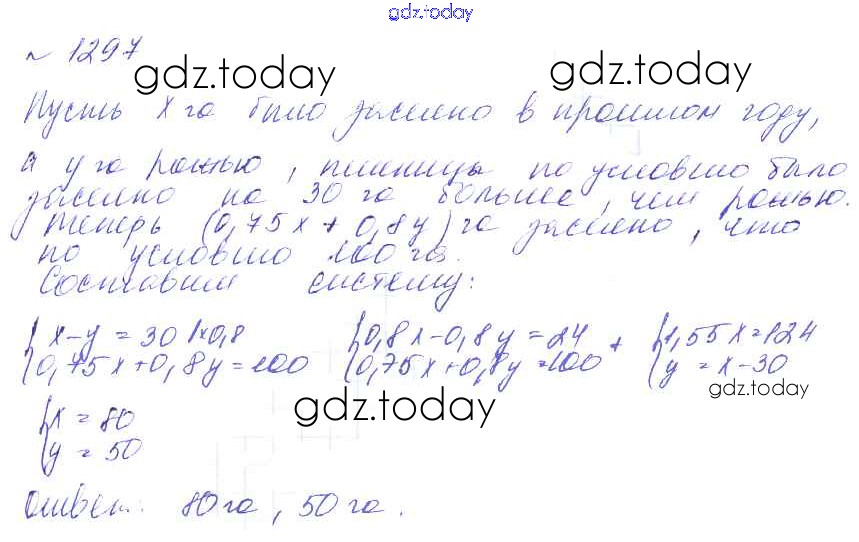 gdz.today
№ 1297
gdz.today gdz.today
Пусть x га было засеяно в прошлом году,
а y га рожью, пшеницы по условию было
засеяно на 30 га больше, чем рожью.
Теперь (0,75x + 0,8y) га засеяно, что
по условию 100 га.
Составим систему:
{x - y = 30 |×0,8 {0,8x - 0,8y = 24 + {1,55x = 124
{0,75x + 0,8y = 100 {0,75x + 0,8y = 100 {y = x - 30
gdz.today gdz.today
{x = 80
{y = 50
Ответ: 80 га, 50 га.